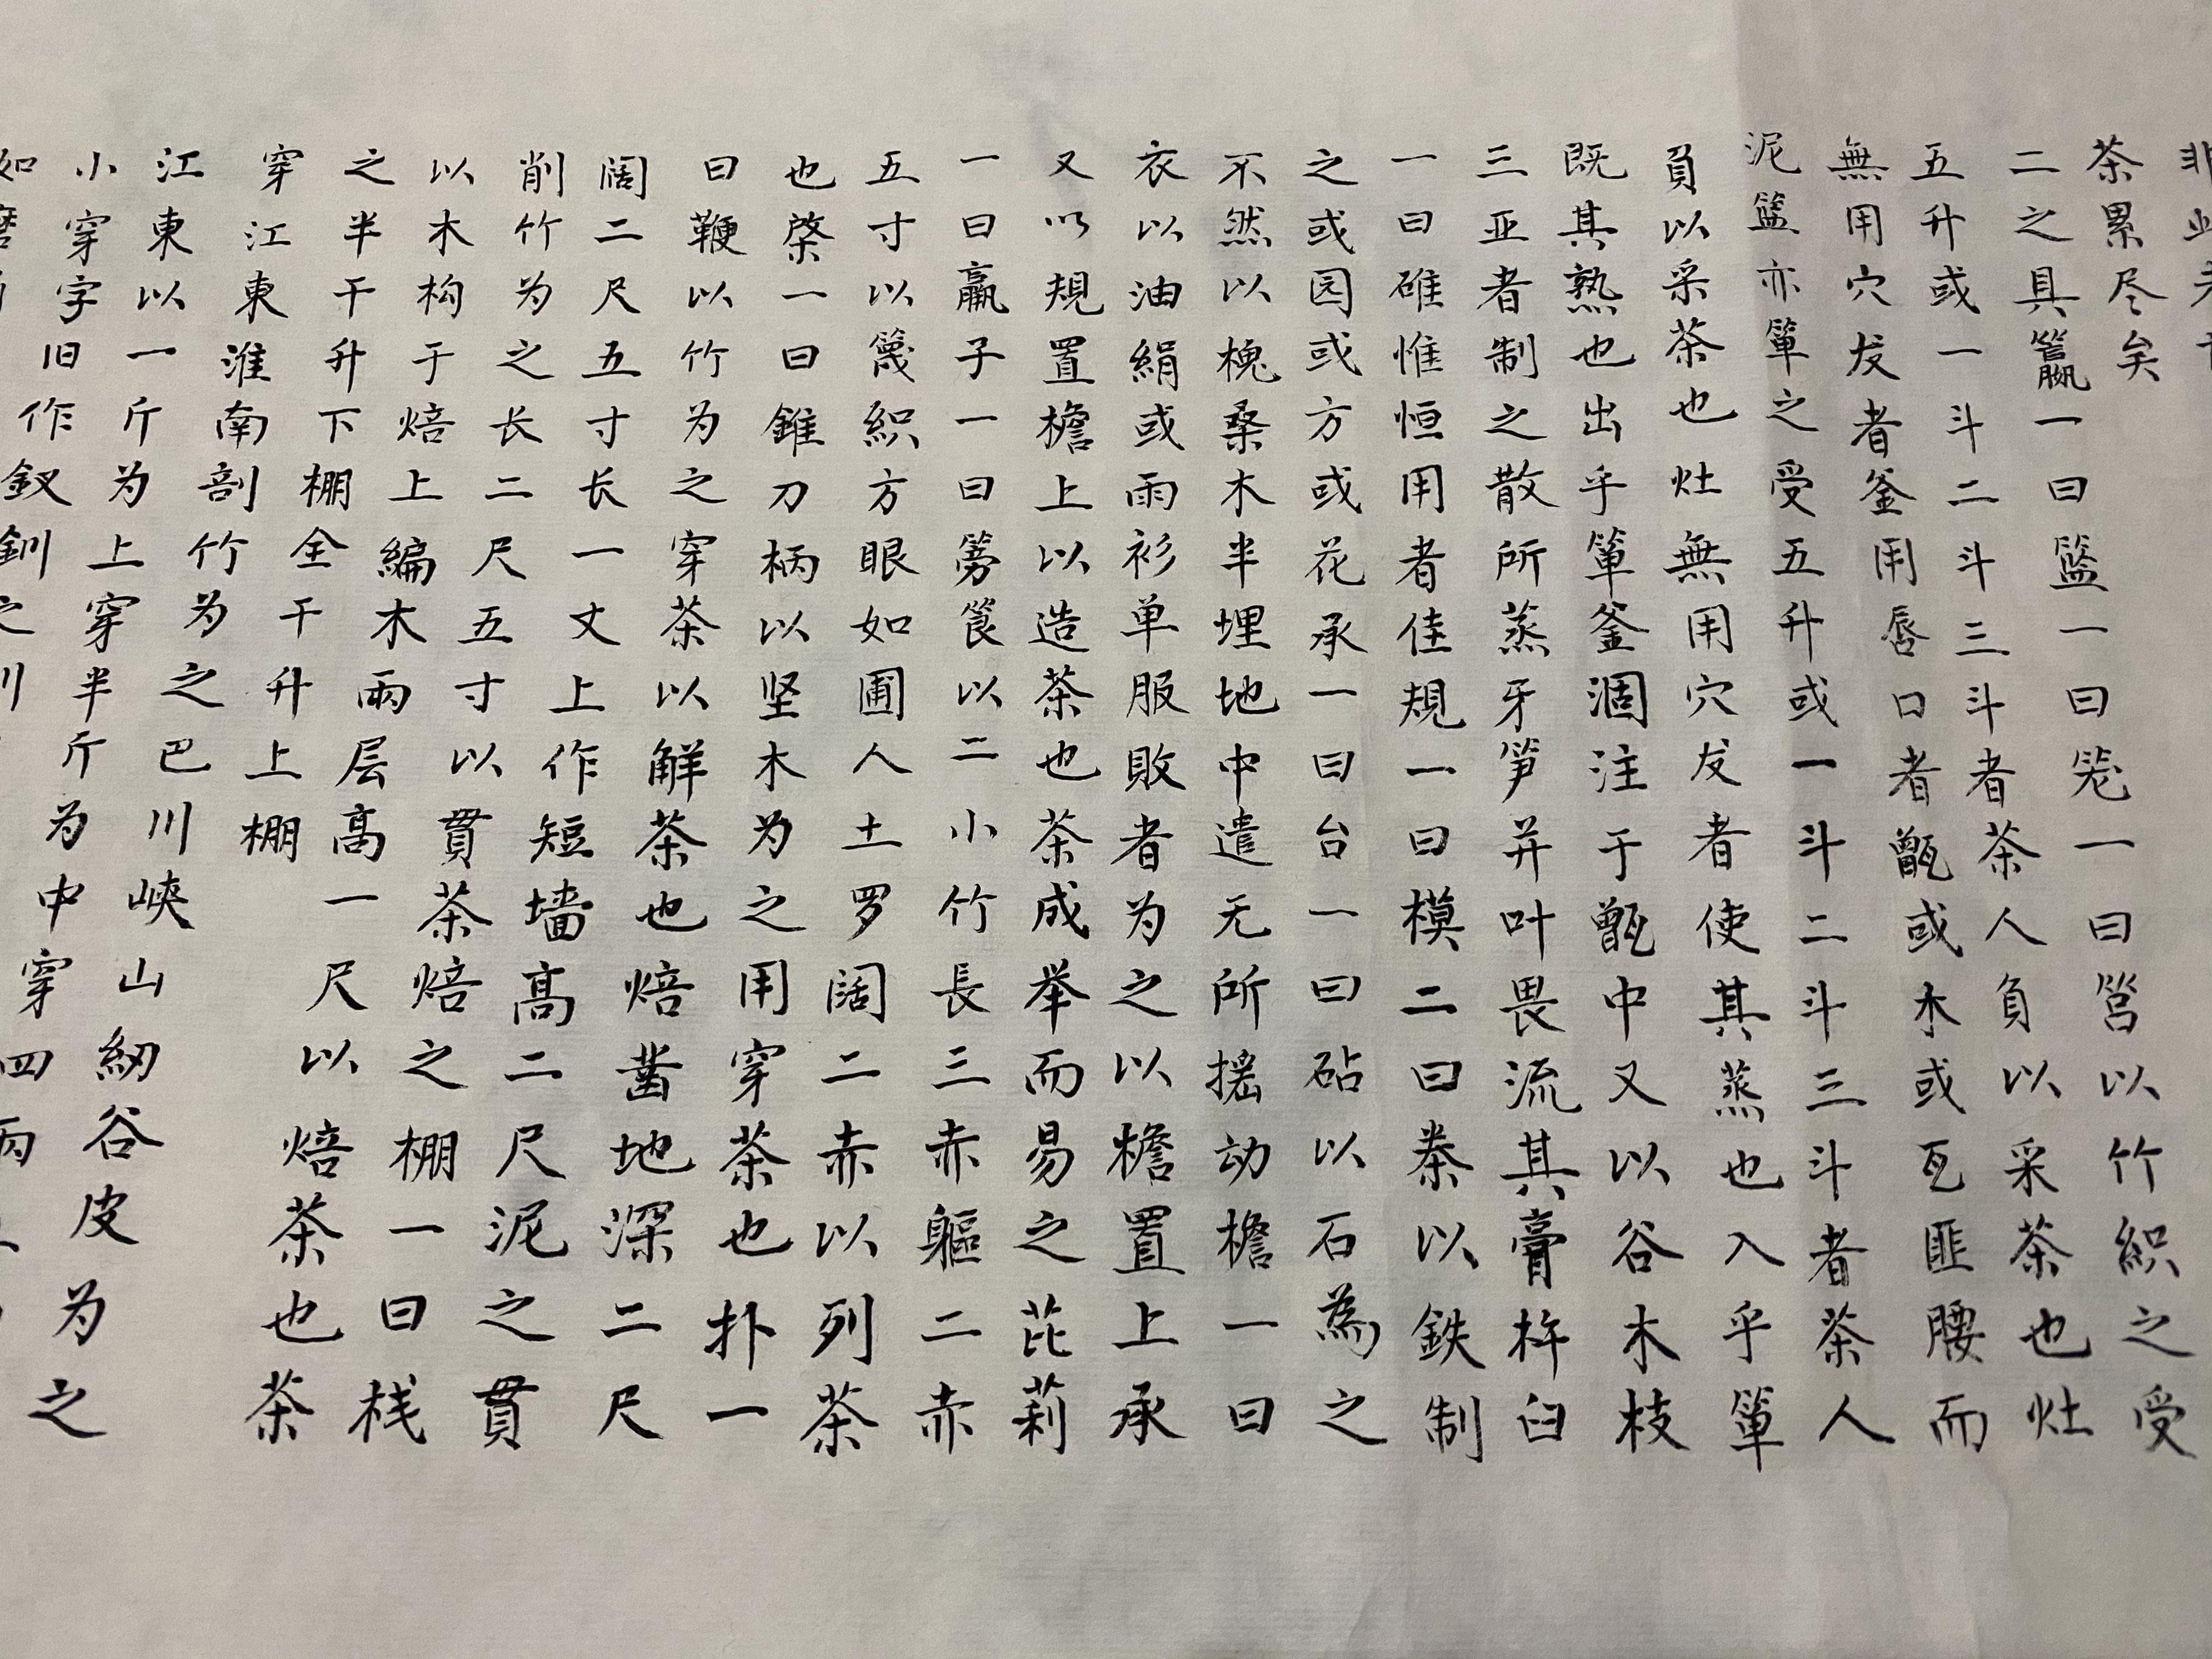 非此者
茶累尽矣
二之具籯一曰籃一曰笼一曰筥以竹織之受
五升或一斗二斗三斗者茶人負以采茶也灶
無用穴犮者釜用唇口者甑或木或瓦匪腰而
泥籃亦箄之受五升或一斗二斗三斗者茶人
負以采茶也灶無用穴犮者使其蒸也入乎箄
既其熟也出乎箄釜涸注于甑中又以谷木枝
三亚者制之散所蒸牙笋并叶畏流其膏杵臼
一曰碓惟恒用者佳規一曰模二曰桊以鉄制
之或园或方或花承一曰台一曰砧以石為之
不然以槐桑木半埋地中遣无所摇动檐一曰
衣以油絹或雨衫单服敗者为之以檐置上承
又以規置檐上以造茶也茶成举而易之芘莉
一曰羸子一曰篣筤以二小竹長三赤軀二赤
五寸以篾織方眼如圃人土罗阔二赤以列茶
也棨一曰錐刀柄以坚木为之用穿茶也扑一
曰鞭以竹为之穿茶以解茶也焙凿地深二尺
阔二尺五寸长一丈上作短墙高二尺泥之貫
削竹为之长二尺五寸以貫茶焙之棚一曰栈
以木构于焙上編木兩层高一尺以焙茶也茶
之半干升下棚全干升上棚
穿江東淮南剖竹为之巴川峽山紉谷皮为之
江東以一斤为上穿半斤为中穿四兩
小穿字旧作釵釧之
如磨